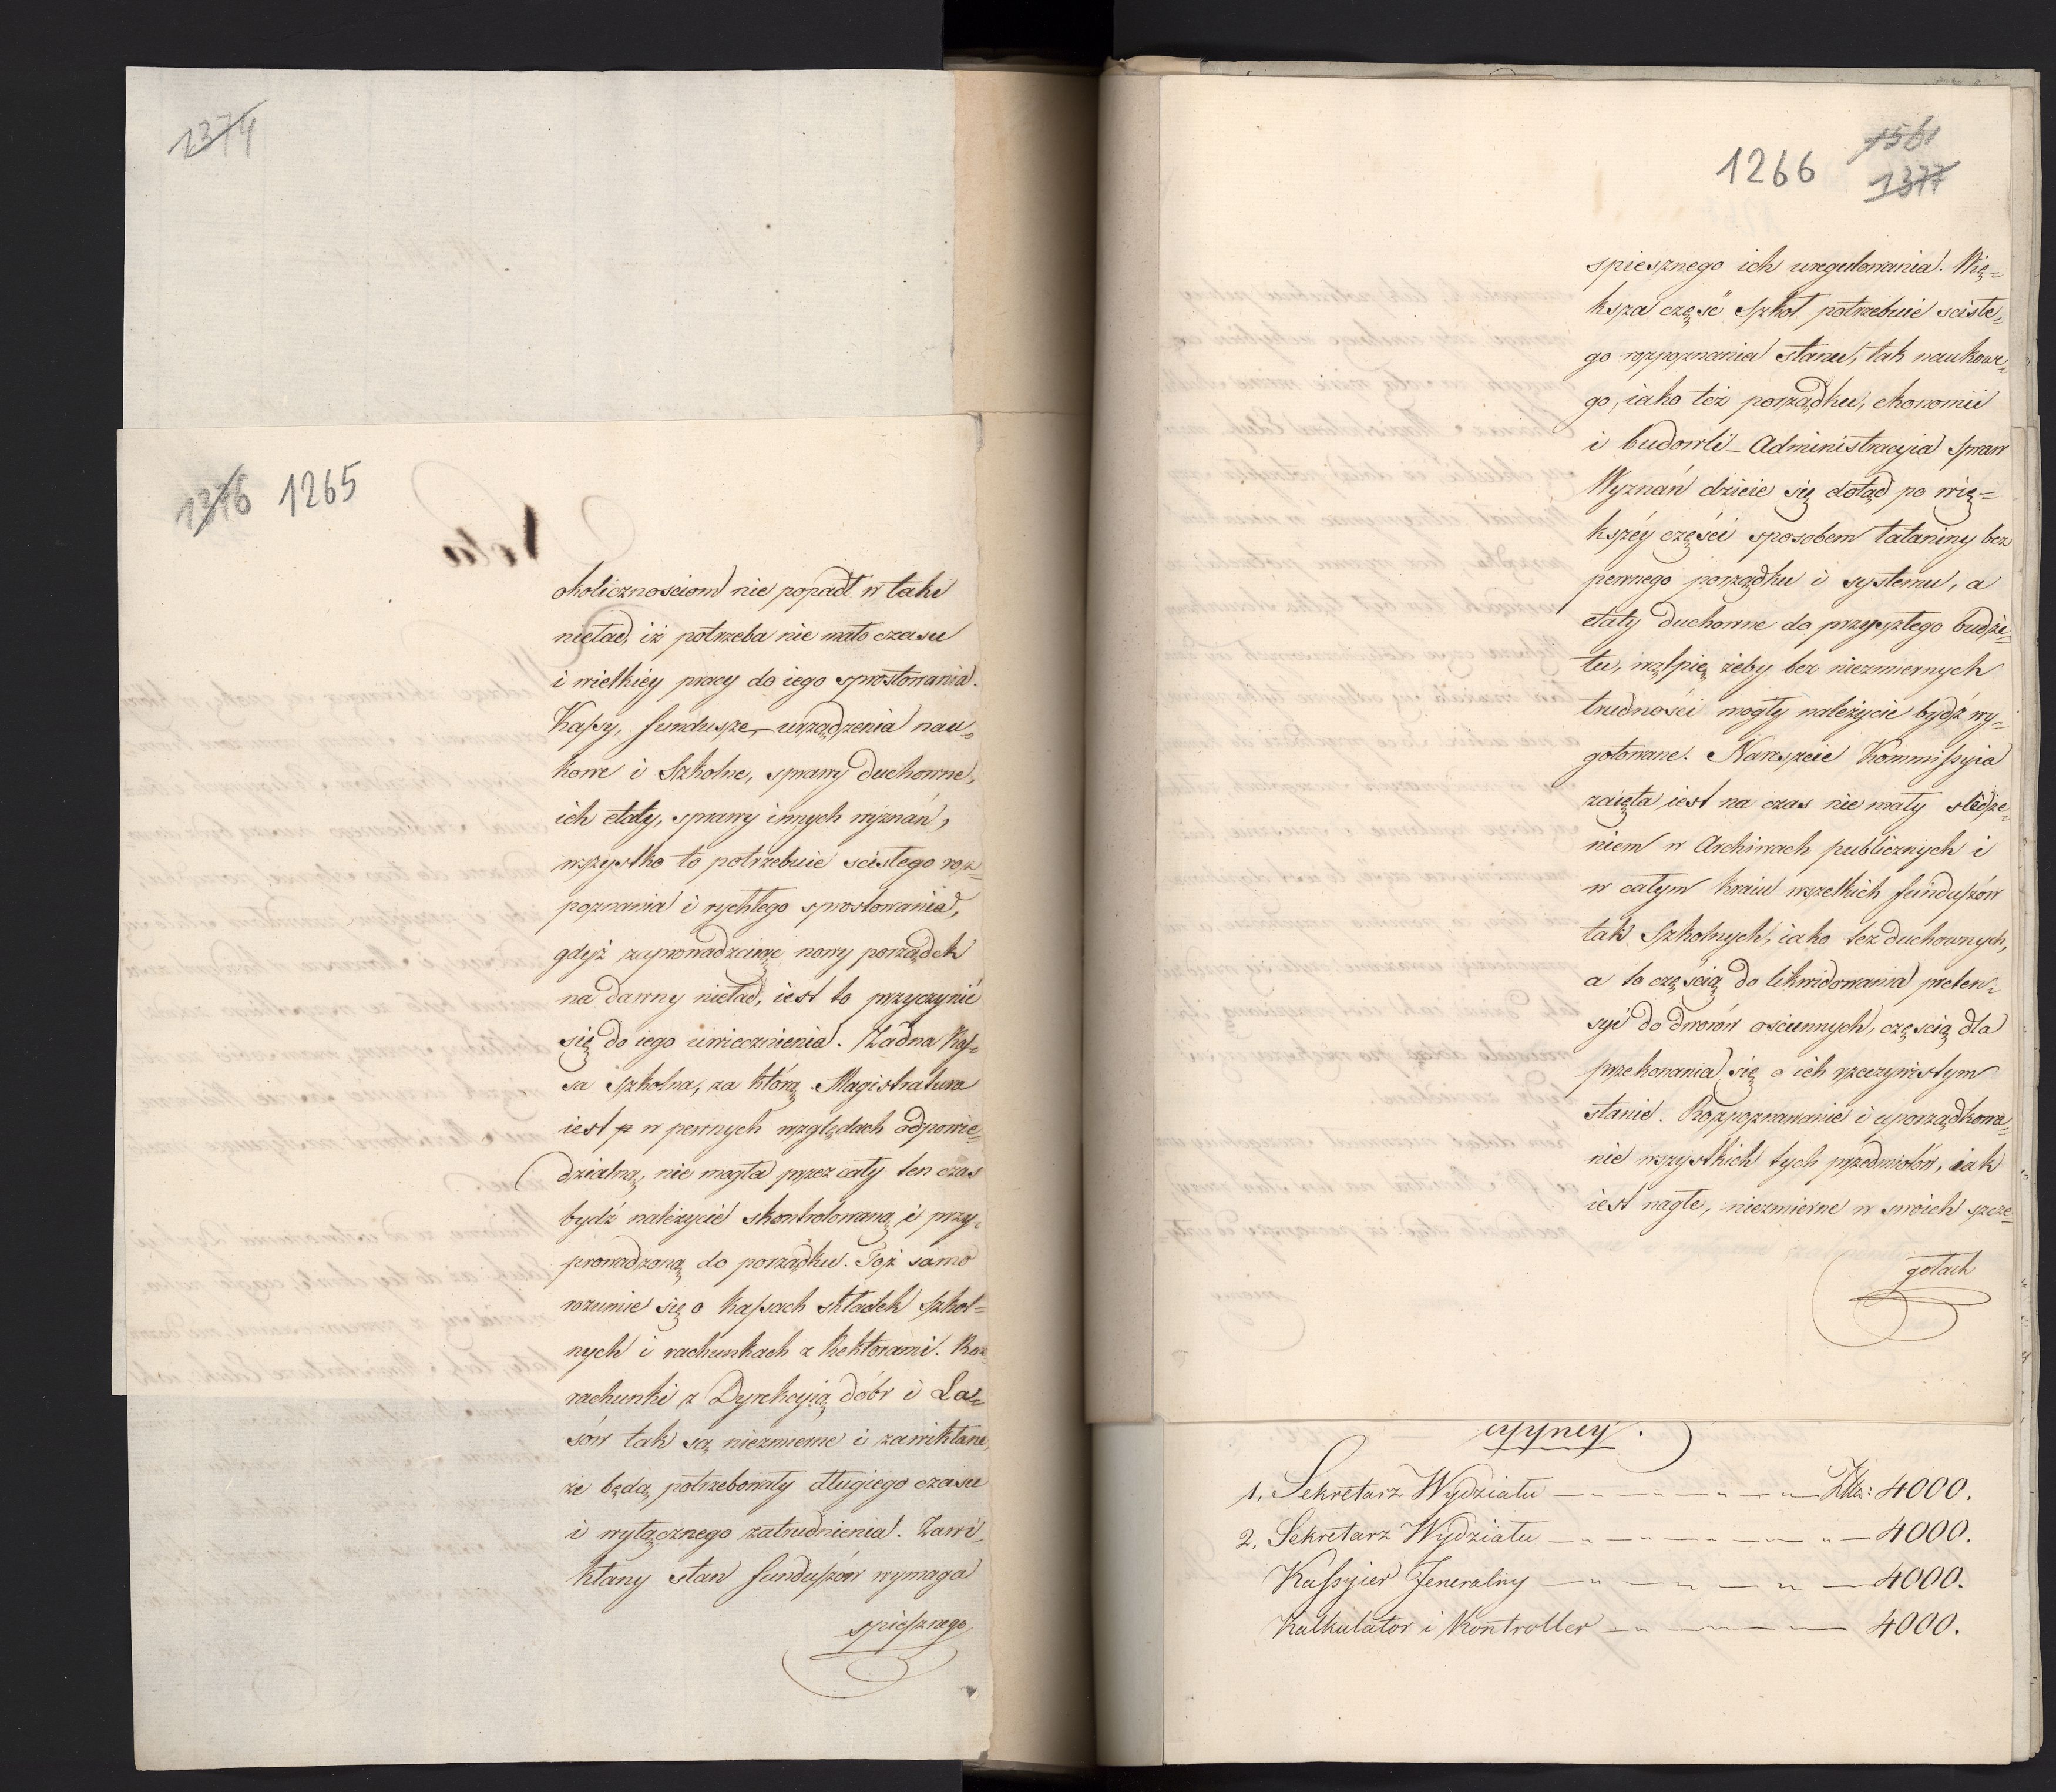 1374
1376 1265
okolicznościom nie popadł w taki
nieład, iż potrzeba nie mało czasu
i wielkiey pracy do iego sprostowania.
Kassy, fundusze, urządzenia nau-
kowe i Szkolne, sprawy duchowne,
ich etaty, sprawy innych wyznań,
wszystko to potrzebuie scisłego roz-
poznania i rychłego sprostowania,
gdyż zaprowadzaiąc nowy porządek
na dawny nieład, iest to przyczynić
się do iego uwiecznienia. Żadna Kas-
sa Szkolna, za którą Magistratura
iest w pewnych względach odpowie-
dzialną, nie mogła przez cały ten czas
bydź należycie skontrolowaną i przy-
prowadzoną do porządku. Toż samo
rozumie się o kassach składek szkol-
nych i rachunkach z Rektorami. Roz-
rachunki z Dyrekcyią dóbr i La-
sów tak są niezmierne i zawikłane,
że będą potrzebowały długiego czasu
i wyłącznego zatrudnienia. Zawi-
kłany stan funduszów wymaga
spiesznego
1266
1561
1377
spiesznego ich uregulowania. Wię-
ksza część Szkół potrzebuie sciśle-
go rozpoznania stanu, tak naukowe-
go, iako też porządku, ekonomii
i budowli - Administracyia spraw
Wyznań dzieie się dotąd po wię-
kszéy części sposobem łataniny bez
pewnego porządku i systemu, a
etaty duchowne do przyszłego budże-
tu, wątpię żeby bez niezmiernych
trudności mogły należycie bydź wy-
gotowane. Nareszcie Kommissyia
zaięta iest na czas nie mały sledze-
niem w Archiwach publicznych i
w całym kraiu wszelkich funduszów
tak Szkolnych, iako też duchownych,
a to częścią do likwidowania preten-
syi do dworów ościennych, częścią dla
przekonania się o ich rzeczywistym
stanie. Rozpoznawanie i uporządkowa-
nie wszystkich tych przedmiotów, iak
iest nagłe, niezmierne w swoich szcze-
gołach
cyyney.
1. Sekretarz Wydziału — Złłp: 4000.
2. Sekretarz Wydziału — 4000.
Kassyier Jeneralny — 4000.
Kalkulator i Kontroller — 4000.